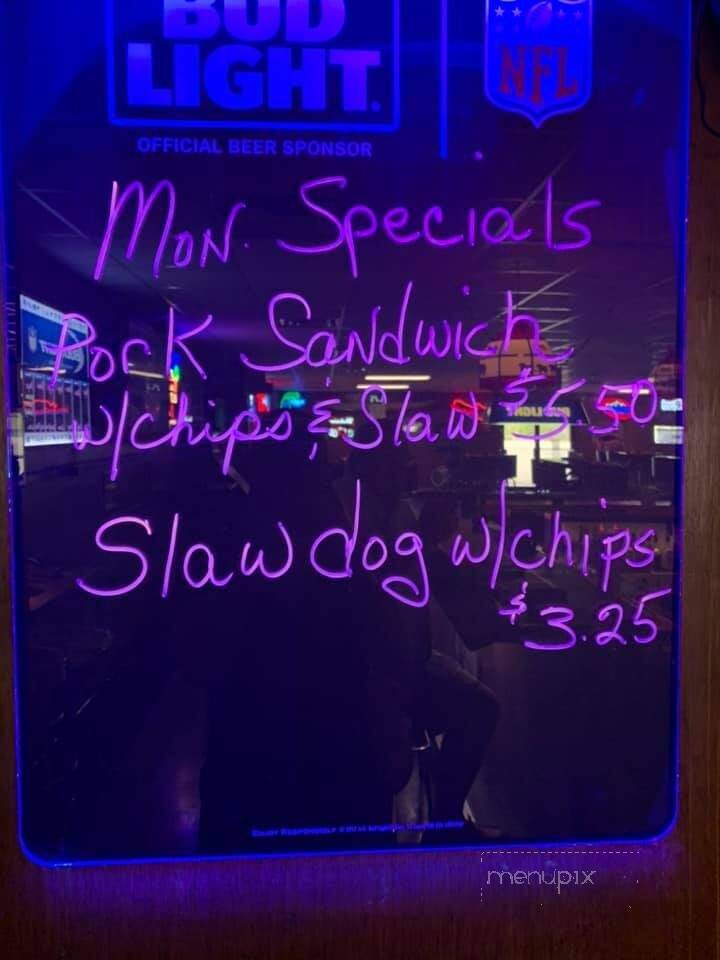 BUD
LIGHT.
NFL
OFFICIAL BEER SPONSOR
Mon. Specials
Pork Sandwich
w/chips & Slaw $5.50
Slaw dog w/chips
$3.25
ENJOY RESPONSIBLY
menupix